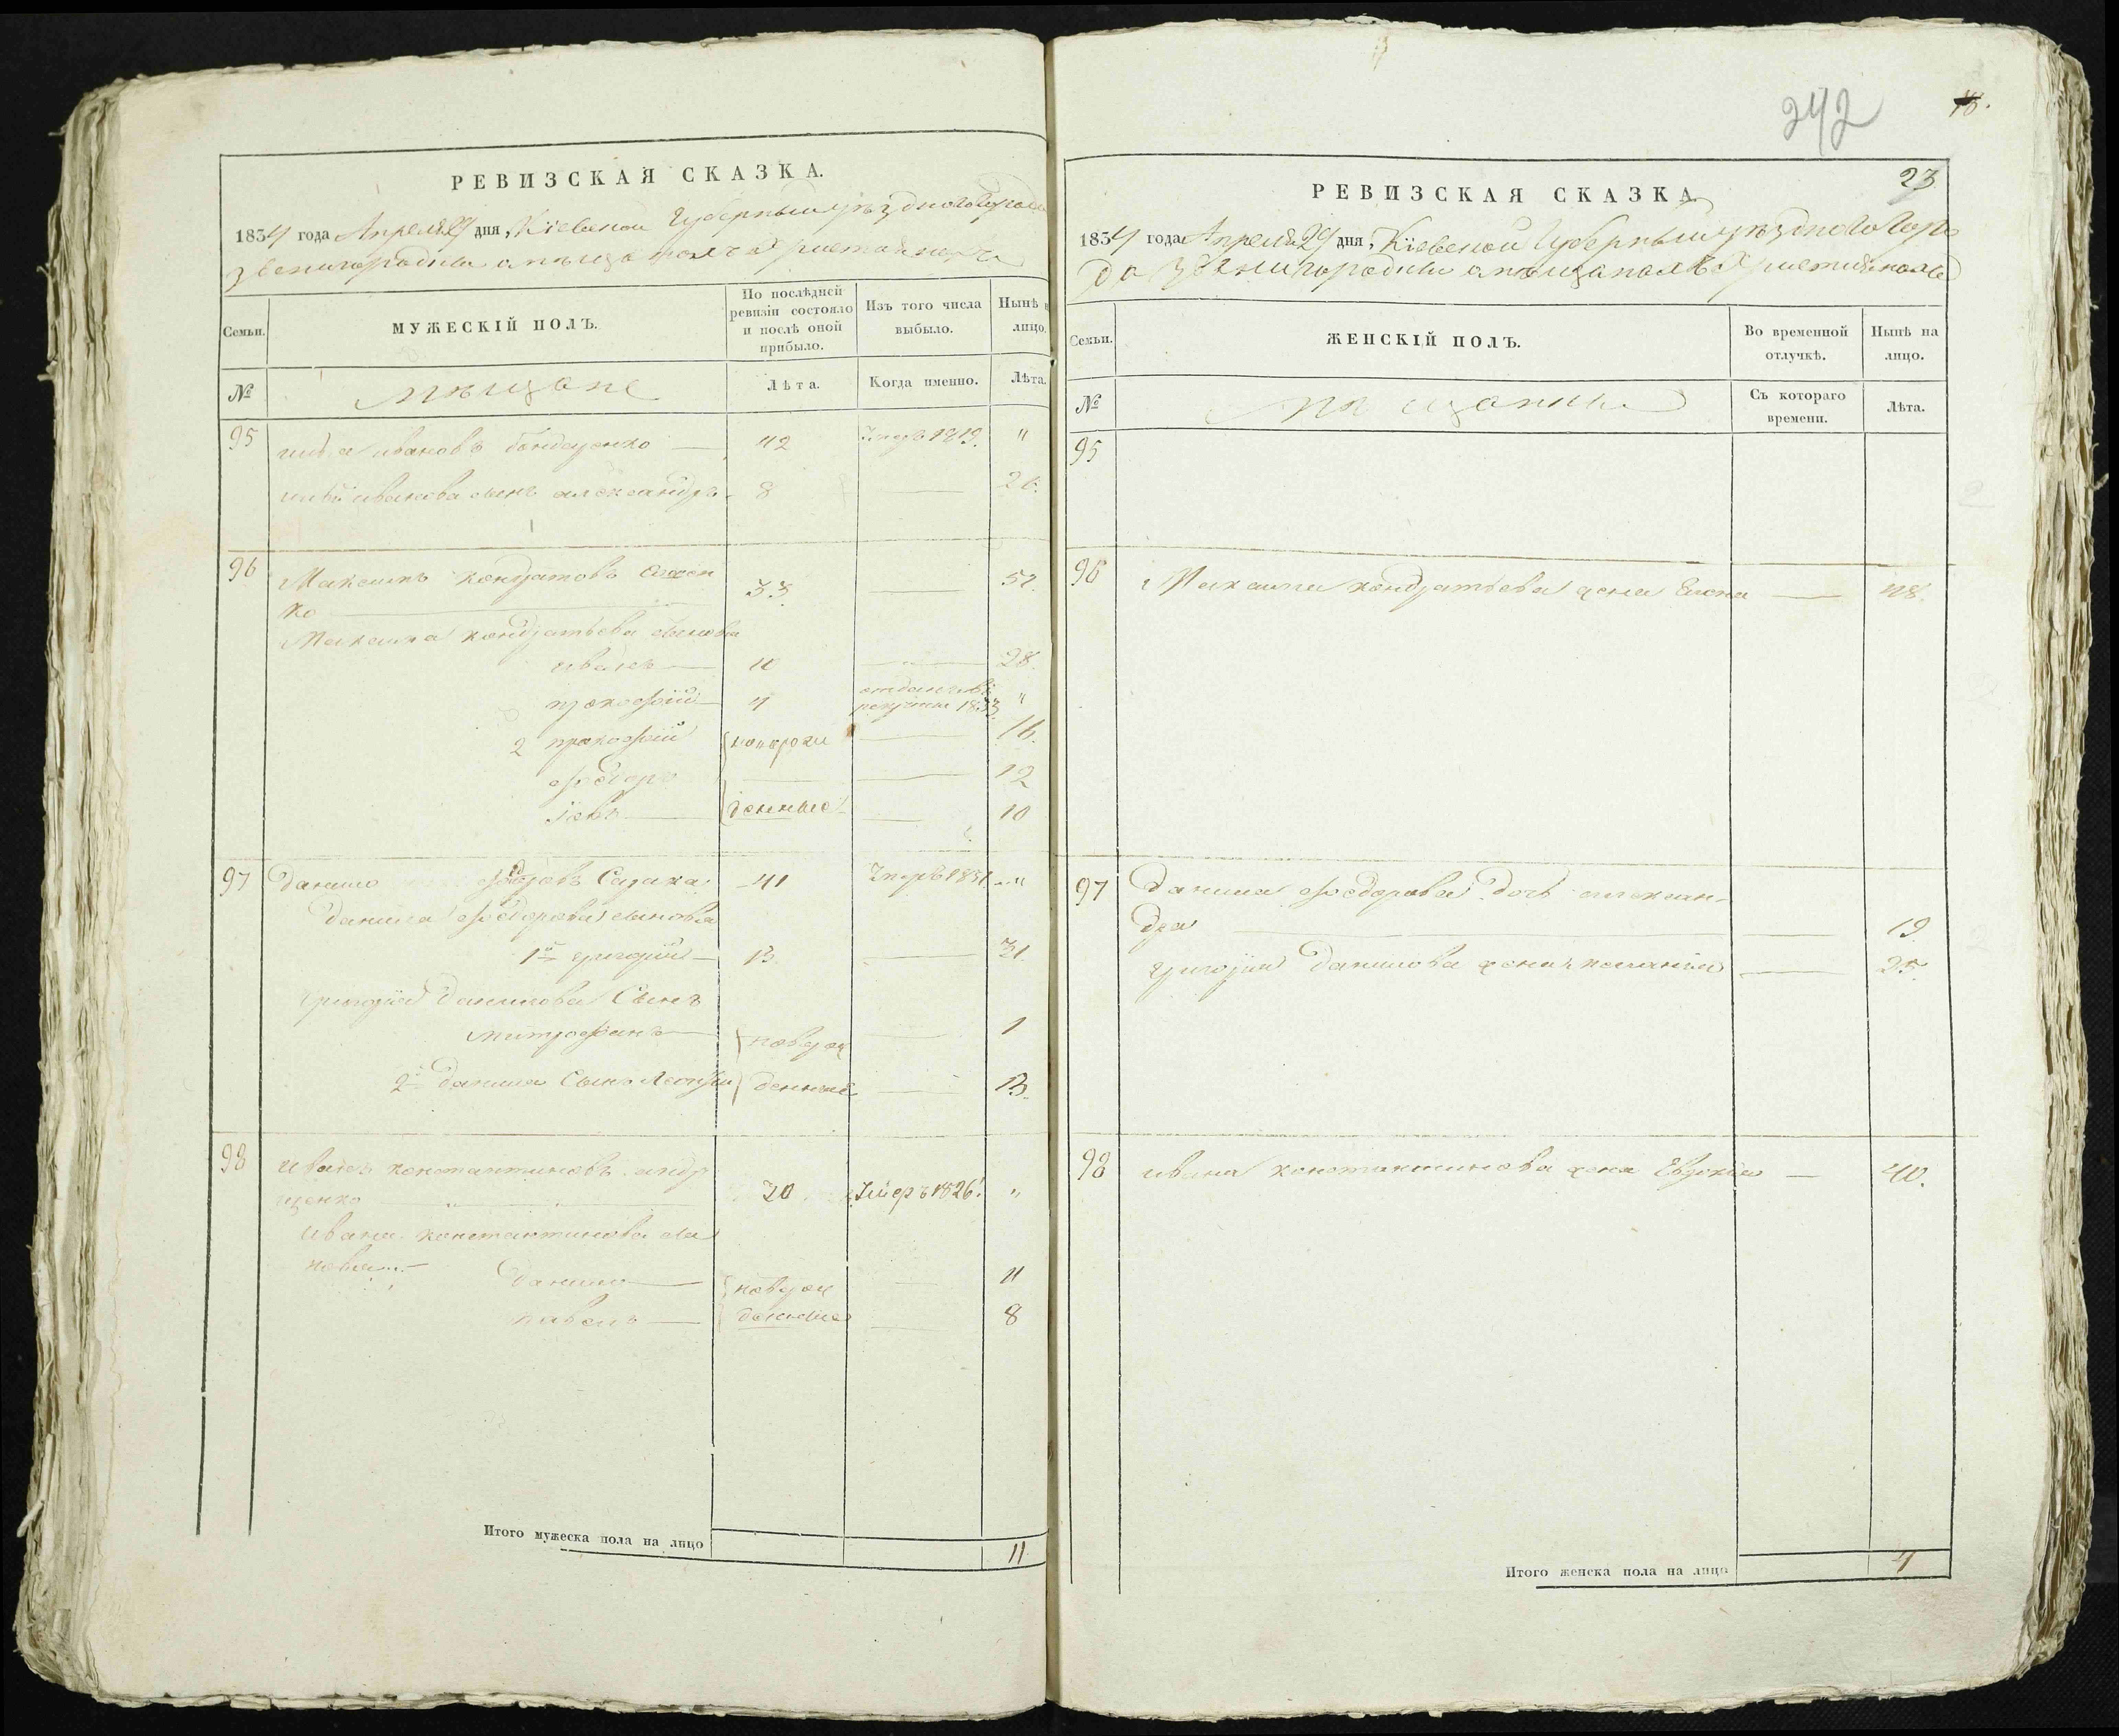 РЕВИЗСКАЯ СКАЗКА.
1834 года Апреля 29 дня, Кіевской Губерніи уѣзднаго города
Звенигородки о мѣщанахъ христіанахъ
Семьи.
МУЖЕСКІЙ ПОЛЪ.
По послѣдней ревизіи состояло и послѣ оной прибыло.
Изъ того числа выбыло.
Нынѣ на лицо.
№
мѣщане
Лѣта.
Когда именно.
Лѣта.
95 Ивановъ Бондаренко — 42 Умеръ 1819. "
Иванова сынъ александръ 8 — 26.
96 Максимъ кондратовъ
ко 33 — 51.
Максима кондратьева сыновья
иванъ — 11 — 28.
прокофій — 4 отданъ въ рекруты 1833 "
2 прокофій новорож — 16.
феодоръ — — 12
Іовъ — денные — 10
97 данило феодоровъ 41 Умеръ 1831 "
данила феодорова сыновья
1й григорій — 13 — 31.
григорія данилова Сынъ
митрофанъ — новорож — 1
2й данила Сынъ Леонтій денные — 13.
98 иванъ константиновъ андр
щенко 30 Умеръ 1826. "
ивана константинова сы
новья данило — новорож — 11
павелъ — денные — 8
Итого мужеска пола на лицо 11
242
23
РЕВИЗСКАЯ СКАЗКА
1834 года Апреля 29 дня, Кіевской Губерніи уѣзднаго горо
да Звенигородки о мѣщанахъ христіанахъ
Семьи.
ЖЕНСКІЙ ПОЛЪ.
Во временной отлучкѣ.
Нынѣ на лицо.
№
мѣщанки
Съ котораго времени.
Лѣта.
95
96 Максима кондратьева жена Елена — 48.
97 данила феодорова дочь алексан-
дра — 19.
григорія данилова жена — 25.
98 ивана константинова жена Евдокія — 40.
Итого женска пола на лицо 4